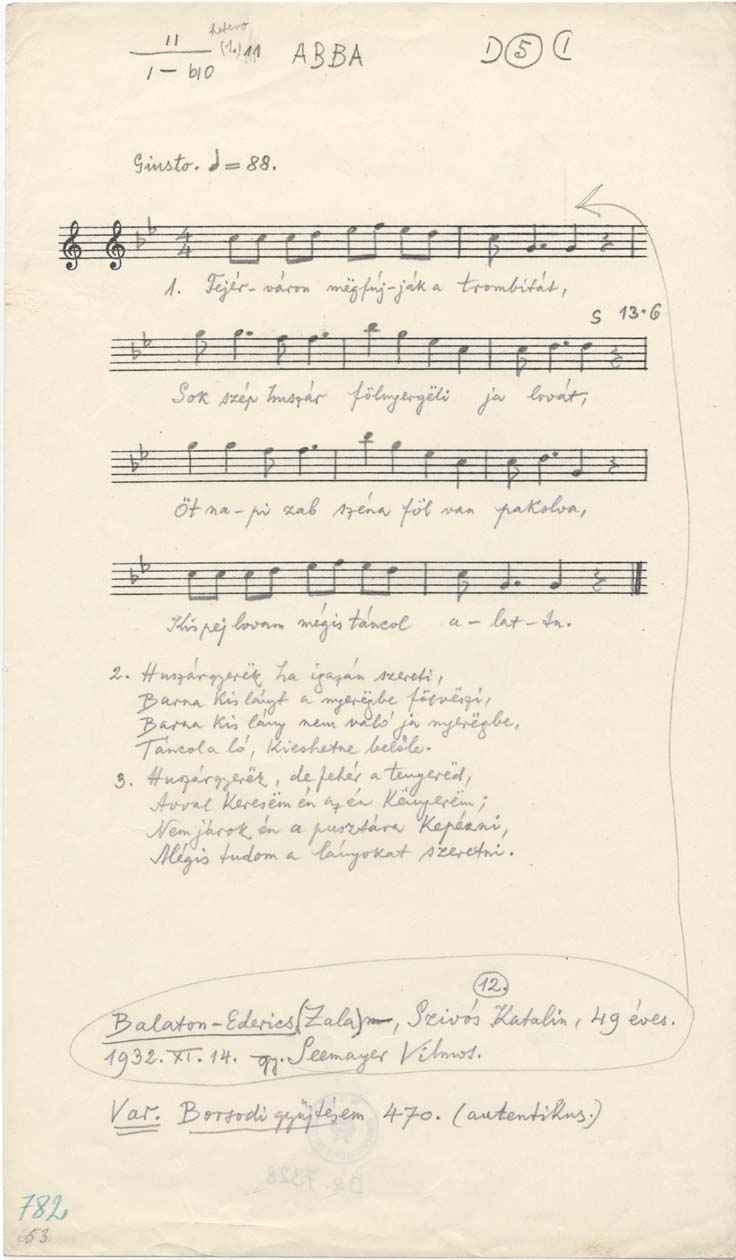 11 hetero
1 - b10 (1.) 11 ABBA 1) 5 (1
Giusto. = 88.
4
4
1. Fejér-váron mëgfúj-ják a trombitát,
S 13·6
Sok szép huszár fölnyergëli ja lovát,
Öt na-pi zab széna föl van pakolva,
Kis pej lovam mégis táncol a-lat-ta.
2. Huszárgyerëk ha igazán szereti,
Barna kis lányt a nyerëgbe fölvëszi,
Barna kis lány nem való ja nyerëgbe,
Táncol a ló, kieshetne belőle.
3. Huszárgyerëk, de fehér a tenyerëd,
Avval keresëm én az én kënyerëm;
Nem járok én a pusztára kapázni,
Mégis tudom a lányokat szeretni.
12.
Balaton-Ederics (Zala), Szivós Katalin, 49 éves.
1932. XI. 14. gy. Seemayer Vilmos.
Var. Borsodi gyüjtésem 470. (autentikus.)
BR. 7328
782
653